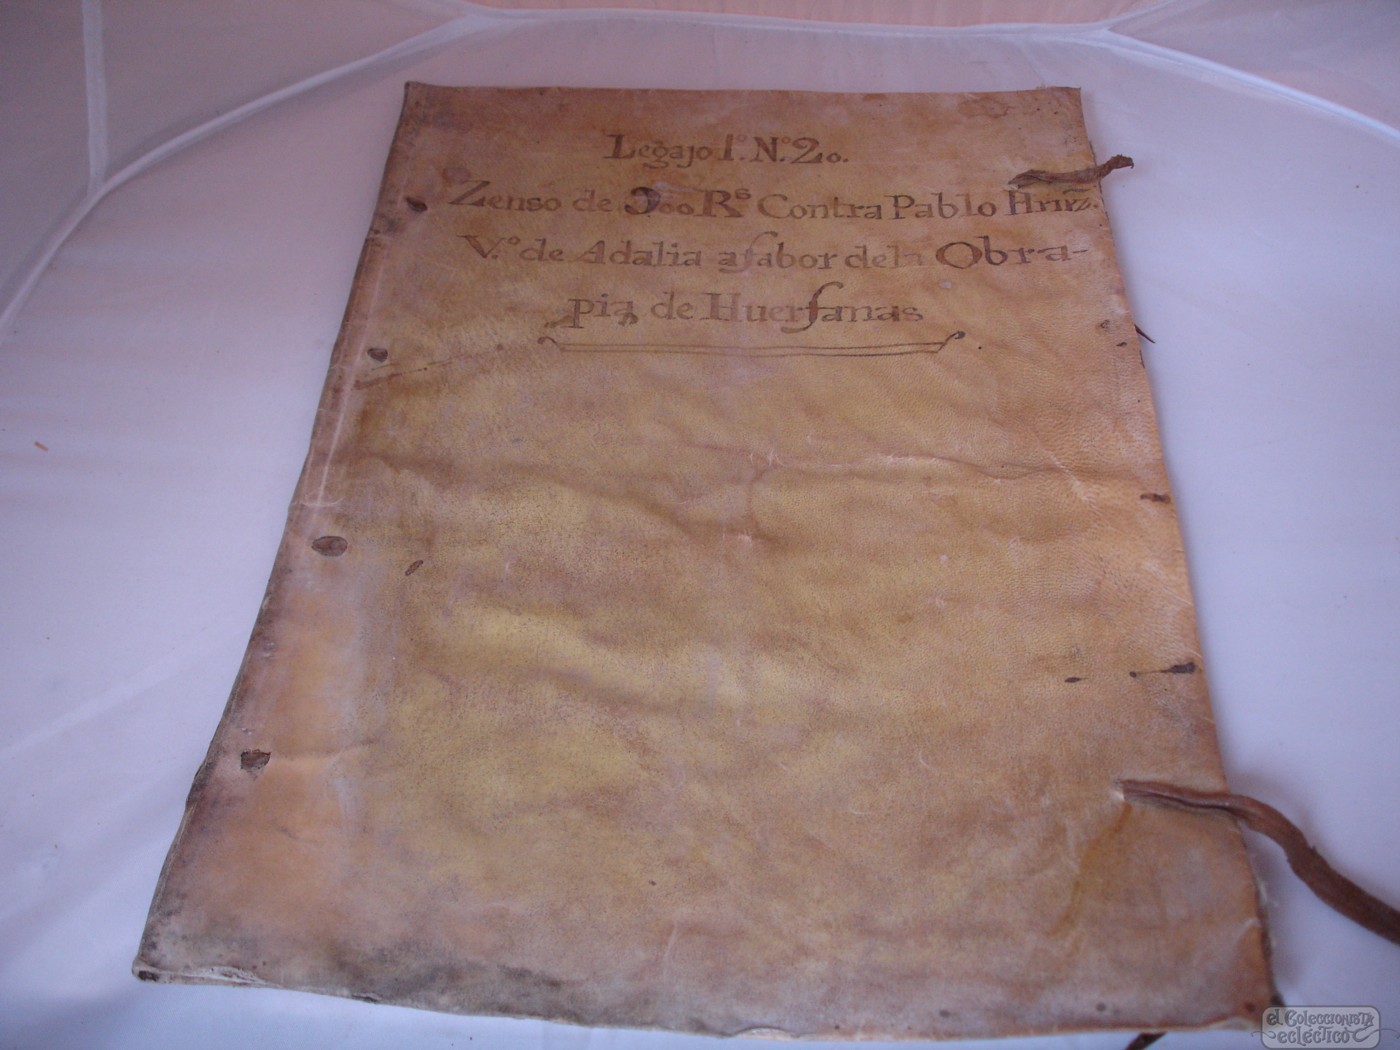 Legajo 1.º N.º 20.
Zenso de 300 R.s Contra Pablo Hrnz.
V.º de Adalia afabor dela Obra-
pia de Huerfanas
el Coleccionista
ecléctico